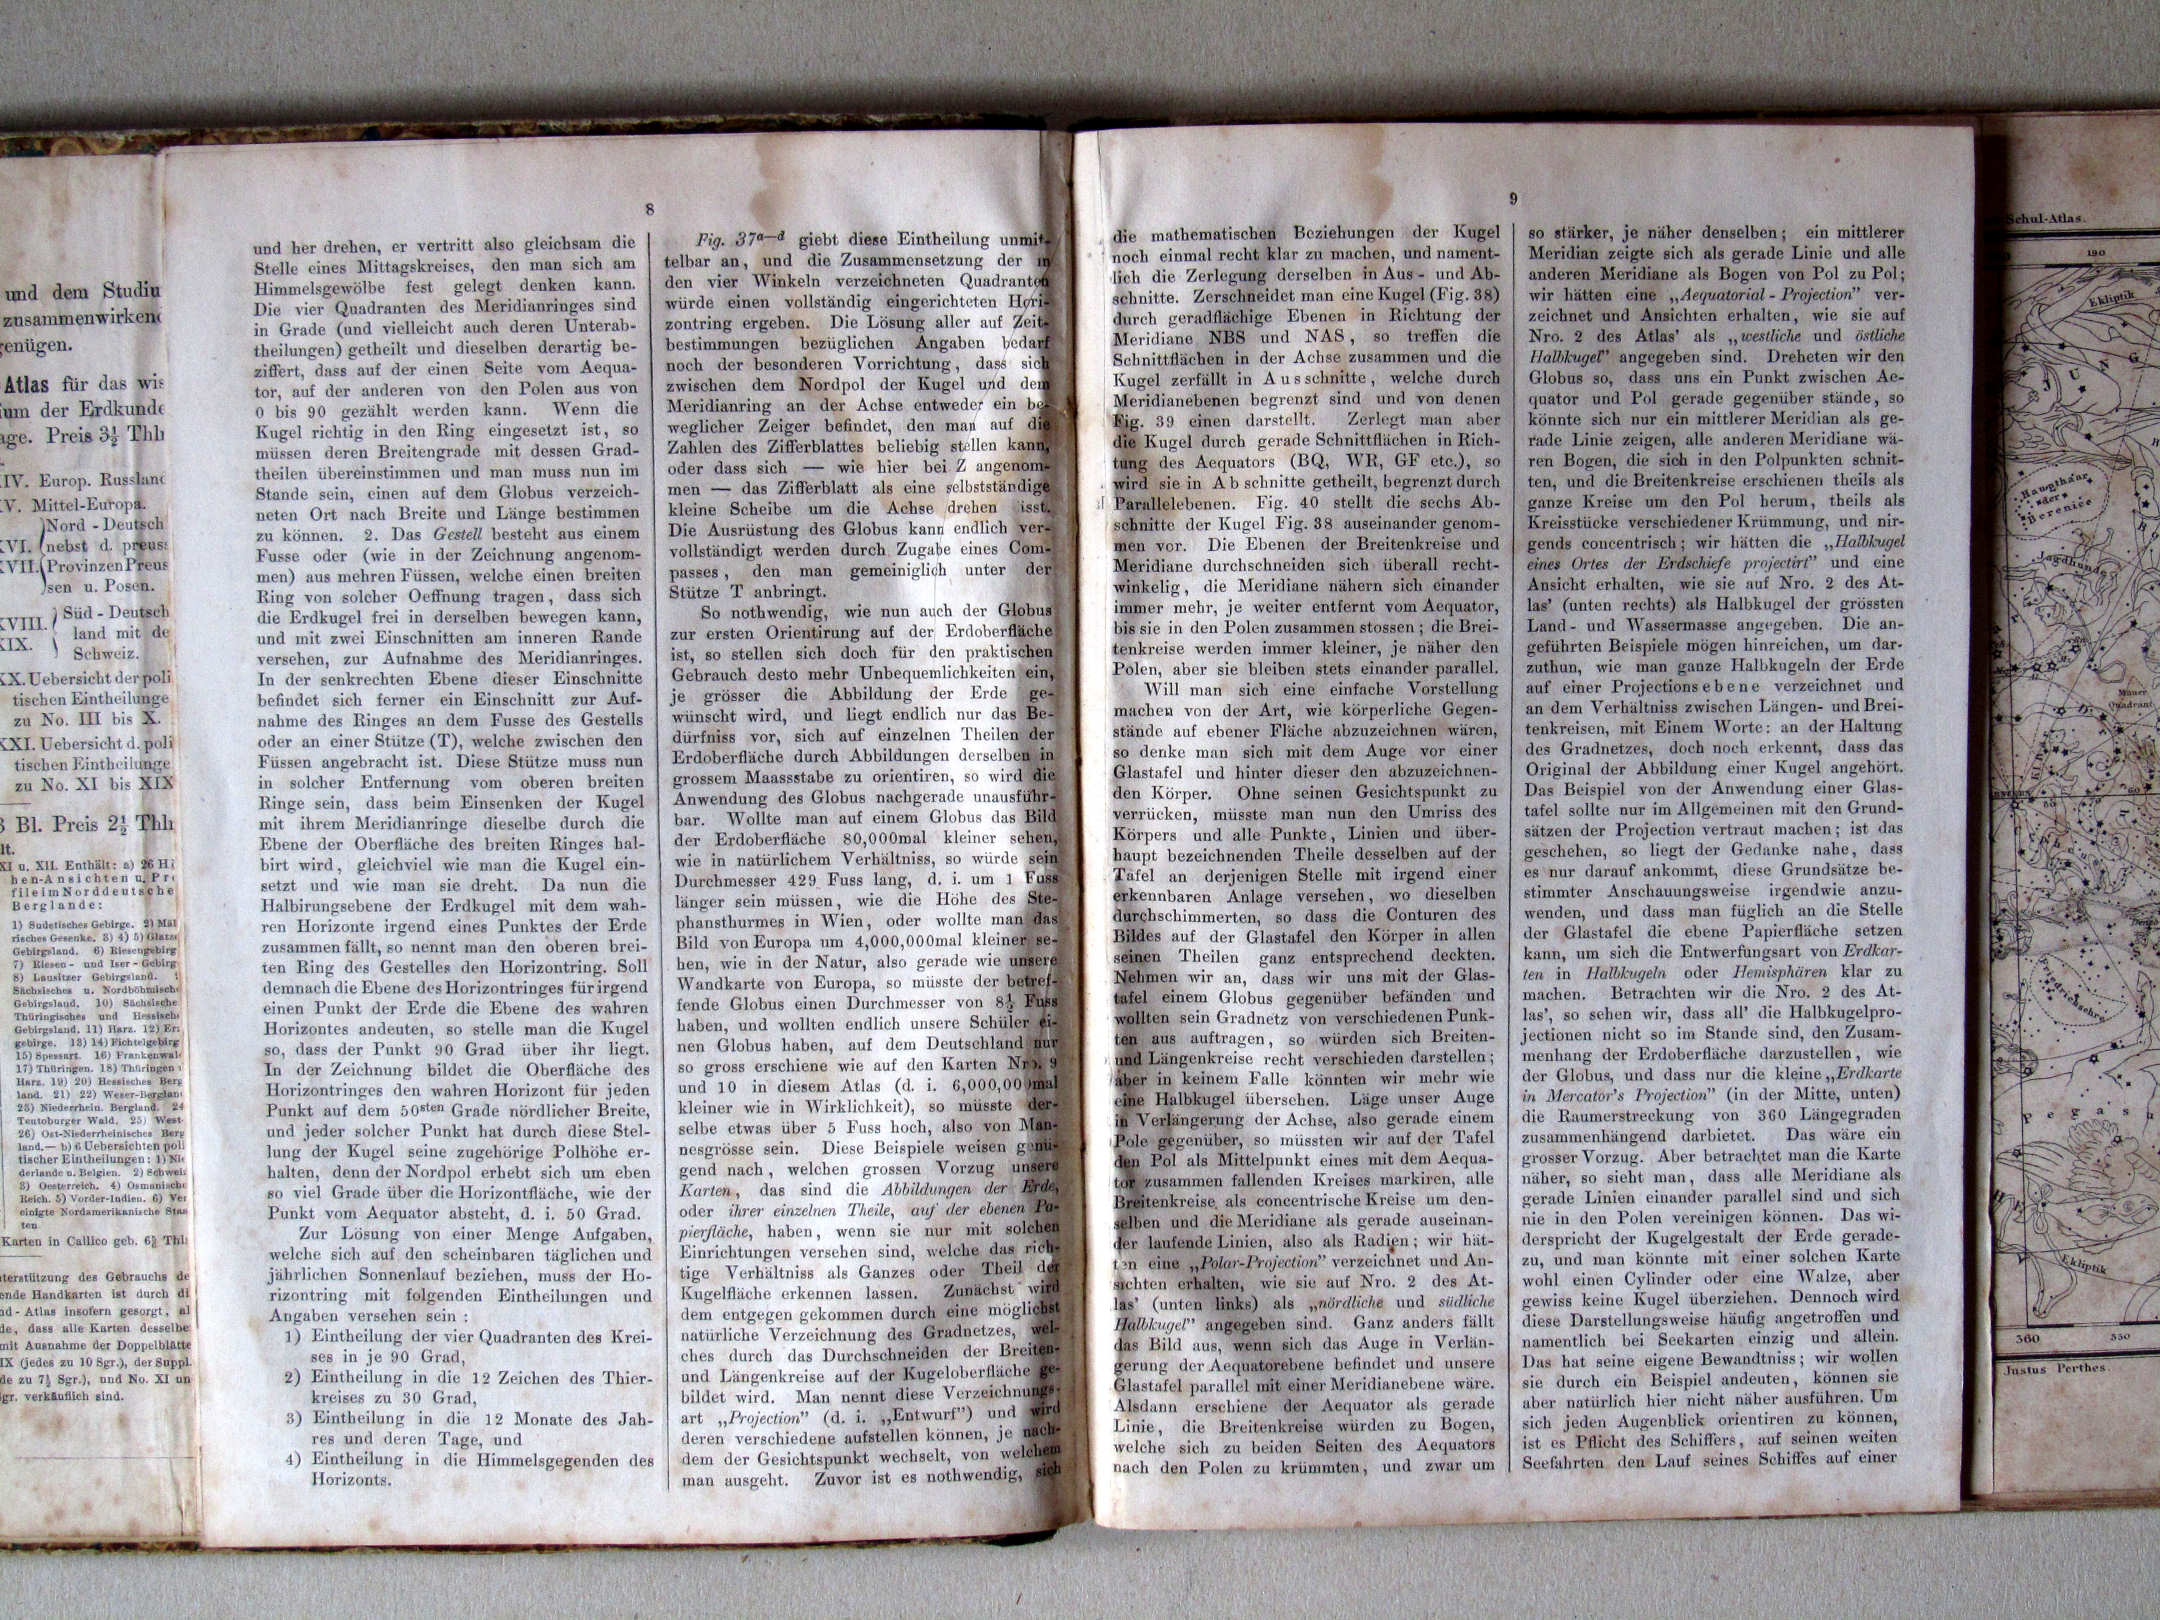 und dem Studiu
zusammenwirken
genügen.
Atlas für das wis
ium der Erdkunde
age. Preis 3½ Thl
XIV. Europ. Russland
XV. Mittel-Europa.
Nord - Deutsch
XVI. nebst d. preuss
XVII. Provinzen Preus
sen u. Posen.
XVIII. Süd - Deutsch
land mit de
XIX. Schweiz.
XX. Uebersicht der poli
tischen Eintheilunge
zu No. III bis X.
XXI. Uebersicht d. poli
tischen Eintheilunge
zu No. XI bis XIX
Bl. Preis 2½ Thl
lt.
XI u. XII. Enthält: a) 26 Hö
hen-Ansichten u. Pro
file im Norddeutsche
Berglande:
1) Sudetisches Gebirge. 2) Mäh
risches Gesenke. 3) 4) 5) Glatzer
Gebirgsland. 6) Riesengebirg
7) Riesen- und Iser-Gebirg
8) Lausitzer Gebirgsland.
Sächsisches u. Nordböhmische
Gebirgsland. 10) Sächsische
Thüringisches und Hessische
Gebirgsland. 11) Harz. 12) Erz
gebirge. 13) 14) Fichtelgebirg
15) Spessart. 16) Frankenwald
17) Thüringen. 18) Thüringen
Harz. 19) 20) Hessisches Berg
land. 21) 22) Weser-Bergland
23) Niederrhein. Bergland. 24
Teutoburger Wald. 25) West-
26) Ost-Niederrheinisches Berg
land. — b) 6 Uebersichten poli
tischer Eintheilungen: 1) Nie
derlande u. Belgien. 2) Schweiz
3) Oesterreich. 4) Osmanische
Reich. 5) Vorder-Indien. 6) Ver
einigte Nordamerikanische Staa
ten
Karten in Callico geb. 6⅔ Thl
nterstützung des Gebrauchs de
ende Handkarten ist durch di
nd-Atlas insofern gesorgt, al
de, dass alle Karten desselbe
mit Ausnahme der Doppelblätte
IX (jedes zu 10 Sgr.), der Suppl.
de zu 7½ Sgr.), und No. XI un
gr. verkäuflich sind.
8
und her drehen, er vertritt also gleichsam die
Stelle eines Mittagskreises, den man sich am
Himmelsgewölbe fest gelegt denken kann.
Die vier Quadranten des Meridianringes sind
in Grade (und vielleicht auch deren Unterab-
theilungen) getheilt und dieselben derartig be-
ziffert, dass auf der einen Seite vom Aequa-
tor, auf der anderen von den Polen aus von
0 bis 90 gezählt werden kann. Wenn die
Kugel richtig in den Ring eingesetzt ist, so
müssen deren Breitengrade mit dessen Grad-
theilen übereinstimmen und man muss nun im
Stande sein, einen auf dem Globus verzeich-
neten Ort nach Breite und Länge bestimmen
zu können. 2. Das Gestell besteht aus einem
Fusse oder (wie in der Zeichnung angenom-
men) aus mehren Füssen, welche einen breiten
Ring von solcher Oeffnung tragen, dass sich
die Erdkugel frei in derselben bewegen kann,
und mit zwei Einschnitten am inneren Rande
versehen, zur Aufnahme des Meridianringes.
In der senkrechten Ebene dieser Einschnitte
befindet sich ferner ein Einschnitt zur Auf-
nahme des Ringes an dem Fusse des Gestells
oder an einer Stütze (T), welche zwischen den
Füssen angebracht ist. Diese Stütze muss nun
in solcher Entfernung vom oberen breiten
Ringe sein, dass beim Einsenken der Kugel
mit ihrem Meridianringe dieselbe durch die
Ebene der Oberfläche des breiten Ringes hal-
birt wird, gleichviel wie man die Kugel ein-
setzt und wie man sie dreht. Da nun die
Halbirungsebene der Erdkugel mit dem wah-
ren Horizonte irgend eines Punktes der Erde
zusammen fällt, so nennt man den oberen brei-
ten Ring des Gestelles den Horizontring. Soll
demnach die Ebene des Horizontringes für irgend
einen Punkt der Erde die Ebene des wahren
Horizontes andeuten, so stelle man die Kugel
so, dass der Punkt 90 Grad über ihr liegt.
In der Zeichnung bildet die Oberfläche des
Horizontringes den wahren Horizont für jeden
Punkt auf dem 50sten Grade nördlicher Breite,
und jeder solcher Punkt hat durch diese Stel-
lung der Kugel seine zugehörige Polhöhe er-
halten, denn der Nordpol erhebt sich um eben
so viel Grade über die Horizontfläche, wie der
Punkt vom Aequator absteht, d. i. 50 Grad.
Zur Lösung von einer Menge Aufgaben,
welche sich auf den scheinbaren täglichen und
jährlichen Sonnenlauf beziehen, muss der Ho-
rizontring mit folgenden Eintheilungen und
Angaben versehen sein:
1) Eintheilung der vier Quadranten des Krei-
ses in je 90 Grad,
2) Eintheilung in die 12 Zeichen des Thier-
kreises zu 30 Grad,
3) Eintheilung in die 12 Monate des Jah-
res und deren Tage, und
4) Eintheilung in die Himmelsgegenden des
Horizonts.
Fig. 37a—d giebt diese Eintheilung unmit-
telbar an, und die Zusammensetzung der in
den vier Winkeln verzeichneten Quadranten
würde einen vollständig eingerichteten Hori-
zontring ergeben. Die Lösung aller auf Zeit-
bestimmungen bezüglichen Angaben bedarf
noch der besonderen Vorrichtung, dass sich
zwischen dem Nordpol der Kugel und dem
Meridianring an der Achse entweder ein be-
weglicher Zeiger befindet, den man auf die
Zahlen des Zifferblattes beliebig stellen kann,
oder dass sich — wie hier bei Z angenom-
men — das Zifferblatt als eine selbstständige
kleine Scheibe um die Achse drehen lässt.
Die Ausrüstung des Globus kann endlich ver-
vollständigt werden durch Zugabe eines Com-
passes, den man gemeiniglich unter der
Stütze T anbringt.
So nothwendig, wie nun auch der Globus
zur ersten Orientirung auf der Erdoberfläche
ist, so stellen sich doch für den praktischen
Gebrauch desto mehr Unbequemlichkeiten ein,
je grösser die Abbildung der Erde ge-
wünscht wird, und liegt endlich nur das Be-
dürfniss vor, sich auf einzelnen Theilen der
Erdoberfläche durch Abbildungen derselben in
grossem Maassstabe zu orientiren, so wird die
Anwendung des Globus nachgerade unausführ-
bar. Wollte man auf einem Globus das Bild
der Erdoberfläche 80,000mal kleiner sehen,
wie in natürlichem Verhältniss, so würde sein
Durchmesser 429 Fuss lang, d. i. um 1 Fuss
länger sein müssen, wie die Höhe des Ste-
phansthurmes in Wien, oder wollte man das
Bild von Europa um 4,000,000mal kleiner se-
hen, wie in der Natur, also gerade wie unsere
Wandkarte von Europa, so müsste der betref-
fende Globus einen Durchmesser von 8½ Fuss
haben, und wollten endlich unsere Schüler ei-
nen Globus haben, auf dem Deutschland nur
so gross erschiene wie auf den Karten Nro. 9
und 10 in diesem Atlas (d. i. 6,000,000mal
kleiner wie in Wirklichkeit), so müsste der-
selbe etwas über 5 Fuss hoch, also von Man-
nesgrösse sein. Diese Beispiele weisen genü-
gend nach, welchen grossen Vorzug unsere
Karten, das sind die Abbildungen der Erde,
oder ihrer einzelnen Theile, auf der ebenen Pa-
pierfläche, haben, wenn sie nur mit solchen
Einrichtungen versehen sind, welche das rich-
tige Verhältniss als Ganzes oder Theil der
Kugelfläche erkennen lassen. Zunächst wird
dem entgegen gekommen durch eine möglichst
natürliche Verzeichnung des Gradnetzes, wel-
ches durch das Durchschneiden der Breiten-
und Längenkreise auf der Kugeloberfläche ge-
bildet wird. Man nennt diese Verzeichnungs-
art „Projection” (d. i. „Entwurf”) und wird
deren verschiedene aufstellen können, je nach-
dem der Gesichtspunkt wechselt, von welchem
man ausgeht. Zuvor ist es nothwendig, sich
9
die mathematischen Beziehungen der Kugel
noch einmal recht klar zu machen, und nament-
lich die Zerlegung derselben in Aus- und Ab-
schnitte. Zerschneidet man eine Kugel (Fig. 38)
durch geradflächige Ebenen in Richtung der
Meridiane NBS und NAS, so treffen die
Schnittflächen in der Achse zusammen und die
Kugel zerfällt in Ausschnitte, welche durch
Meridianebenen begrenzt sind und von denen
Fig. 39 einen darstellt. Zerlegt man aber
die Kugel durch gerade Schnittflächen in Rich-
tung des Aequators (BQ, WR, GF etc.), so
wird sie in Abschnitte getheilt, begrenzt durch
Parallelebenen. Fig. 40 stellt die sechs Ab-
schnitte der Kugel Fig. 38 auseinander genom-
men vor. Die Ebenen der Breitenkreise und
Meridiane durchschneiden sich überall recht-
winkelig, die Meridiane nähern sich einander
immer mehr, je weiter entfernt vom Aequator,
bis sie in den Polen zusammen stossen; die Brei-
tenkreise werden immer kleiner, je näher den
Polen, aber sie bleiben stets einander parallel.
Will man sich eine einfache Vorstellung
machen von der Art, wie körperliche Gegen-
stände auf ebener Fläche abzuzeichnen wären,
so denke man sich mit dem Auge vor einer
Glastafel und hinter dieser den abzuzeichnen-
den Körper. Ohne seinen Gesichtspunkt zu
verrücken, müsste man nun den Umriss des
Körpers und alle Punkte, Linien und über-
haupt bezeichnenden Theile desselben auf der
Tafel an derjenigen Stelle mit irgend einer
erkennbaren Anlage versehen, wo dieselben
durchschimmerten, so dass die Conturen des
Bildes auf der Glastafel den Körper in allen
seinen Theilen ganz entsprechend deckten.
Nehmen wir an, dass wir uns mit der Glas-
tafel einem Globus gegenüber befänden und
wollten sein Gradnetz von verschiedenen Punk-
ten aus auftragen, so würden sich Breiten-
und Längenkreise recht verschieden darstellen;
aber in keinem Falle könnten wir mehr wie
eine Halbkugel übersehen. Läge unser Auge
in Verlängerung der Achse, also gerade einem
Pole gegenüber, so müssten wir auf der Tafel
den Pol als Mittelpunkt eines mit dem Aequa-
tor zusammen fallenden Kreises markiren, alle
Breitenkreise als concentrische Kreise um den-
selben und die Meridiane als gerade auseinan-
der laufende Linien, also als Radien; wir hät-
ten eine „Polar-Projection” verzeichnet und An-
sichten erhalten, wie sie auf Nro. 2 des At-
las’ (unten links) als „nördliche und südliche
Halbkugel” angegeben sind. Ganz anders fällt
das Bild aus, wenn sich das Auge in Verlän-
gerung der Aequatorebene befindet und unsere
Glastafel parallel mit einer Meridianebene wäre.
Alsdann erschiene der Aequator als gerade
Linie, die Breitenkreise würden zu Bogen,
welche sich zu beiden Seiten des Aequators
nach den Polen zu krümmten, und zwar um
so stärker, je näher denselben; ein mittlerer
Meridian zeigte sich als gerade Linie und alle
anderen Meridiane als Bogen von Pol zu Pol;
wir hätten eine „Aequatorial-Projection” ver-
zeichnet und Ansichten erhalten, wie sie auf
Nro. 2 des Atlas’ als „westliche und östliche
Halbkugel” angegeben sind. Dreheten wir den
Globus so, dass uns ein Punkt zwischen Ae-
quator und Pol gerade gegenüber stände, so
könnte sich nur ein mittlerer Meridian als ge-
rade Linie zeigen, alle anderen Meridiane wä-
ren Bogen, die sich in den Polpunkten schnit-
ten, und die Breitenkreise erschienen theils als
ganze Kreise um den Pol herum, theils als
Kreisstücke verschiedener Krümmung, und nir-
gends concentrisch; wir hätten die „Halbkugel
eines Ortes der Erdschiefe projectirt” und eine
Ansicht erhalten, wie sie auf Nro. 2 des At-
las’ (unten rechts) als Halbkugel der grössten
Land- und Wassermasse angegeben. Die an-
geführten Beispiele mögen hinreichen, um dar-
zuthun, wie man ganze Halbkugeln der Erde
auf einer Projectionsebene verzeichnet und
an dem Verhältniss zwischen Längen- und Brei-
tenkreisen, mit Einem Worte: an der Haltung
des Gradnetzes, doch noch erkennt, dass das
Original der Abbildung einer Kugel angehört.
Das Beispiel von der Anwendung einer Glas-
tafel sollte nur im Allgemeinen mit den Grund-
sätzen der Projection vertraut machen; ist das
geschehen, so liegt der Gedanke nahe, dass
es nur darauf ankommt, diese Grundsätze be-
stimmter Anschauungsweise irgendwie anzu-
wenden, und dass man füglich an die Stelle
der Glastafel die ebene Papierfläche setzen
kann, um sich die Entwerfungsart von Erdkar-
ten in Halbkugeln oder Hemisphären klar zu
machen. Betrachten wir die Nro. 2 des At-
las’, so sehen wir, dass all’ die Halbkugelpro-
jectionen nicht so im Stande sind, den Zusam-
menhang der Erdoberfläche darzustellen, wie
der Globus, und dass nur die kleine „Erdkarte
in Mercator’s Projection” (in der Mitte, unten)
die Raumerstreckung von 360 Längegraden
zusammenhängend darbietet. Das wäre ein
grosser Vorzug. Aber betrachtet man die Karte
näher, so sieht man, dass alle Meridiane als
gerade Linien einander parallel sind und sich
nie in den Polen vereinigen können. Das wi-
derspricht der Kugelgestalt der Erde gerade-
zu, und man könnte mit einer solchen Karte
wohl einen Cylinder oder eine Walze, aber
gewiss keine Kugel überziehen. Dennoch wird
diese Darstellungsweise häufig angetroffen und
namentlich bei Seekarten einzig und allein.
Das hat seine eigene Bewandtniss; wir wollen
sie durch ein Beispiel andeuten, können sie
aber natürlich hier nicht näher ausführen. Um
sich jeden Augenblick orientiren zu können,
ist es Pflicht des Schiffers, auf seinen weiten
Seefahrten den Lauf seines Schiffes auf einer
Schul-Atlas.
190
Ekliptik
JUNG
Haupthaar
der
Berenice
Jagdhunde
Mauer
Quadrant
60
Friedrichsehre
Pegasus
Ekliptik
360
350
Justus Perthes.